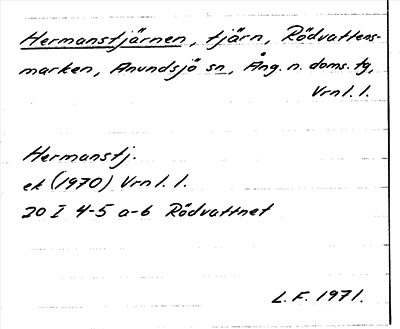 Hermanstjärnen, tjärn, Rödvattens-
marken, Anundsjö sn, Ång. n. doms. tg,
Vrnl. l.
Hermanstj.
ek (1970) Vrnl. l.
20 I 4-5 a-b Rödvattnet
L. F. 1971.